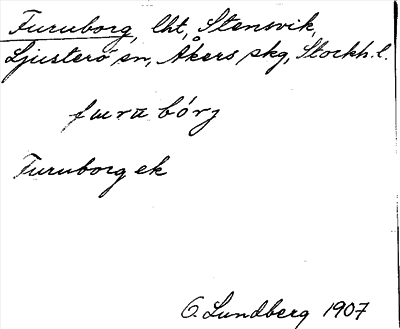 Furuborg, lht, Stensvik,
Ljusterö sn, Åkers skg, Stockh. l.
furabórj
Furuborg ek
O. Lundberg 1907